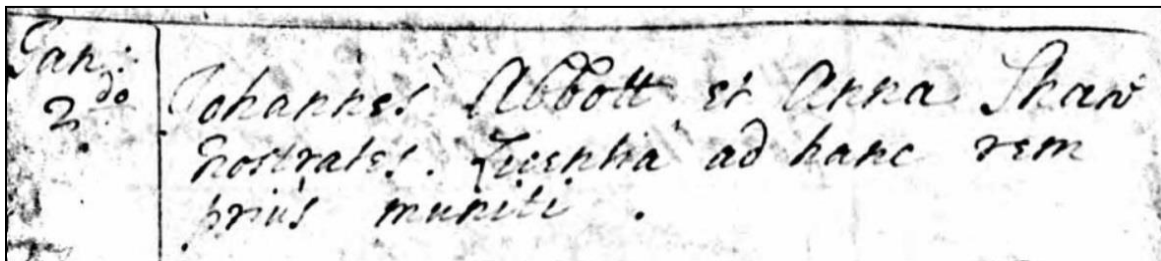 Jan:
2do
Johannes Abbott et Anna Shaw
nostrates. Licentia ad hanc rem
prius muniti.